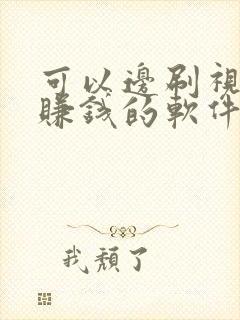 可以邊刷視
賺錢的軟件
我頹了